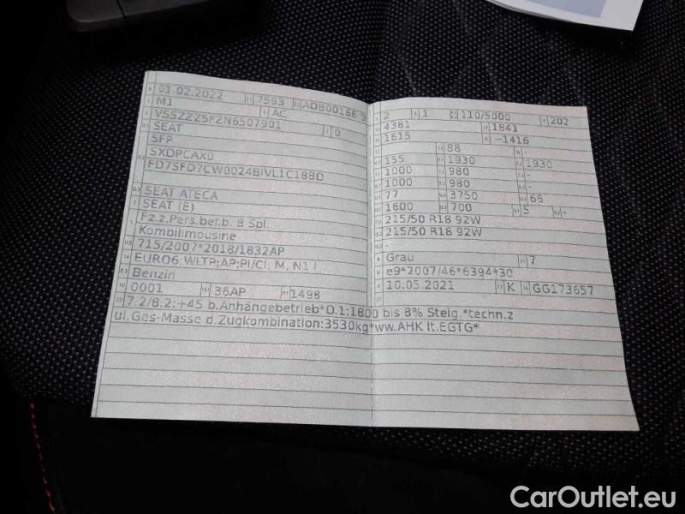 01.02.2022 7593
M1 AC
VSSZZZ5FZN6507901 0
SEAT
5FP
SXDPCAX0
SEAT ATECA
SEAT (E)
Fz.z.Pers.bef.b. 8 Spl.
Kombilimousine
715/2007*2018/1832AP
EURO6 WLTP;AP;PI/CI; M, N1 I
Benzin
0001 36AP 1498
2 1 110/5000 202
4381 1841
1615 -1416
88 -
155 1930 1930
1000 980 -
1000 980 -
77 3750 65
1800 700 5 -
215/50 R18 92W
215/50 R18 92W
-
Grau 7
e9*2007/46*6394*30
10.05.2021 K GG173657
7.2/8.2:+45 b.Anhängebetrieb*O.1:1800 bis 8% Steig.*techn.z
ul.Ges-Masse d.Zugkombination:3530kg*ww.AHK lt.EGTG*
CarOutlet.eu